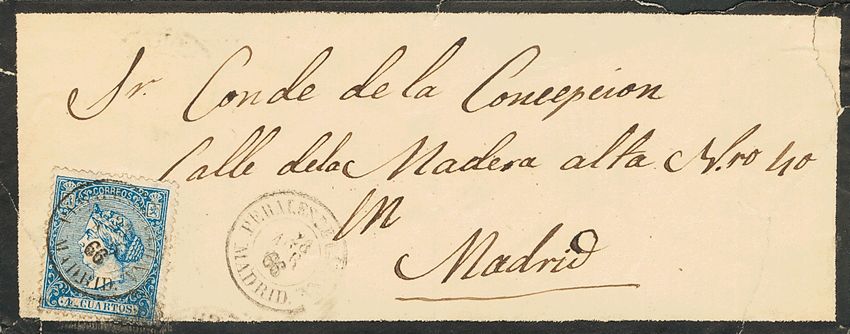 Sr. Conde de la Concepcion
Calle dela Madera alta N.ro 40
M
Madrid
CORREOS
4. CUARTOS
66
MADRID.
PERALES
18
66
MADRID.